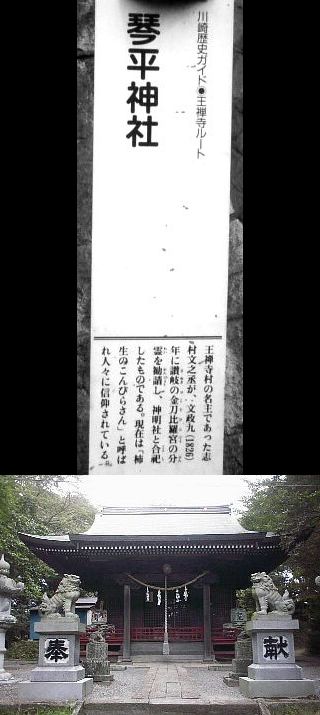 川崎歴史ガイド●王禅寺ルート
琴平神社
王禅寺村の名主であった志
村文之丞が、文政九(1826)
年に讃岐の金刀比羅宮の分
霊を勧請し、神明社と合祀
したものである。現在は「柿
生のこんぴらさん」と呼ば
れ人々に信仰されている。
奉
献